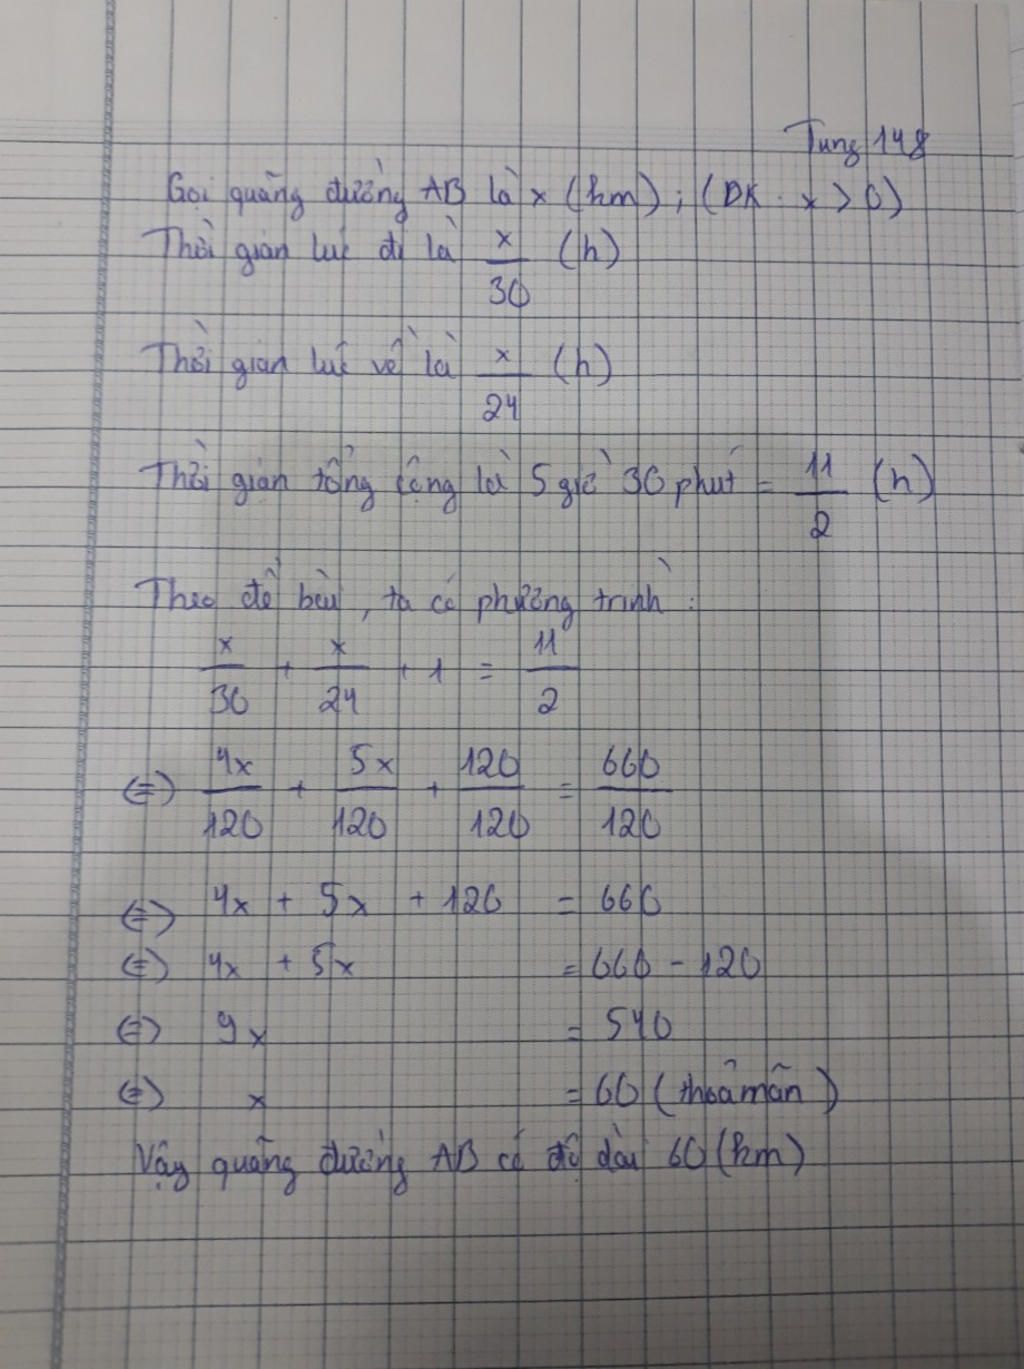 Tung 148
Gọi quãng đường AB là x (km); (ĐK: x > 0)
Thời gian lúc đi là x/30 (h)
Thời gian lúc về là x/24 (h)
Thời gian tổng cộng là 5 giờ 30 phút = 11/2 (h)
Theo đề bài, ta có phương trình:
x/30 + x/24 + 1 = 11/2
(=) 4x/120 + 5x/120 + 120/120 = 660/120
(=) 4x + 5x + 120 = 660
(=) 4x + 5x = 660 - 120
(=) 9x = 540
(=) x = 60 (thoả mãn)
Vậy quãng đường AB có độ dài 60 (km)